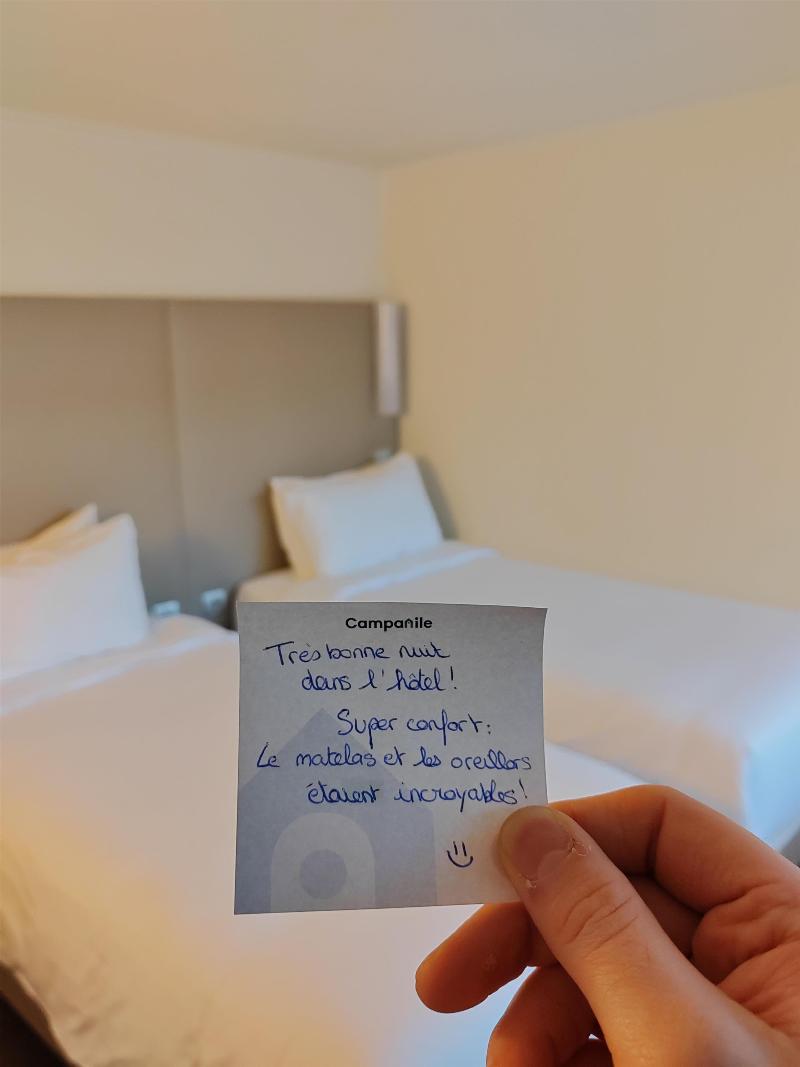 Campanile
Très bonne nuit
dans l'hôtel !
Super confort :
Le matelas et les oreillers
étaient incroyables !